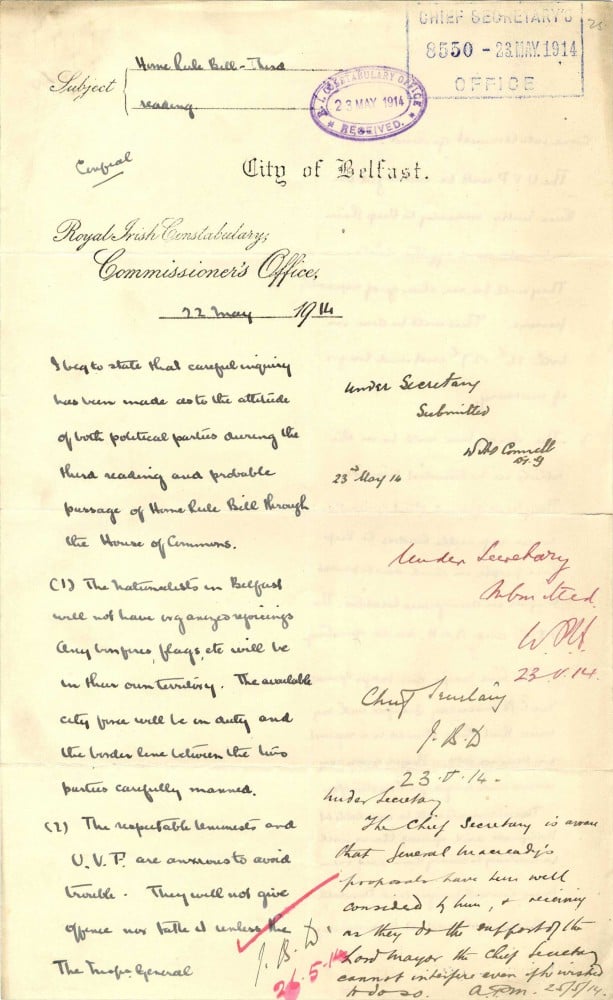 CHIEF SECRETARY'S
8550 - 23 MAY. 1914
OFFICE
25
Subject
Home Rule Bill - Third
reading
R.I. CONSTABULARY OFFICE
23 MAY 1914
RECEIVED.
City of Belfast.
Royal Irish Constabulary,
Commissioner's Office,
22 May 1914
I beg to state that careful inquiry
has been made as to the attitude
of both political parties during the
third reading and probable
passage of Home Rule Bill through
the House of Commons.
(1) The nationalists in Belfast
will not have organized rejoicings
Any bonfires, flags, etc will be
in their own territory. The available
city force will be on duty and
the border line between the two
parties carefully manned.
(2) The respectable Unionists and
U.V.F. are anxious to avoid
trouble. They will not give
offence nor take it unless the
The Insp. General
Under Secretary
Submitted
D.I.G
23rd May 14
Under Secretary
Submitted.
23.V.14.
Chief Secretary
J.B.D
23.V.14.
Under Secretary
The Chief Secretary is aware
that General Macready's
proposals have been well
considered by him, & receiving
as they do the support of the
Lord Mayor the Chief Secretary
cannot interfere even if he wished
to do so. 25/5/14.
J.B.D
26.5.14